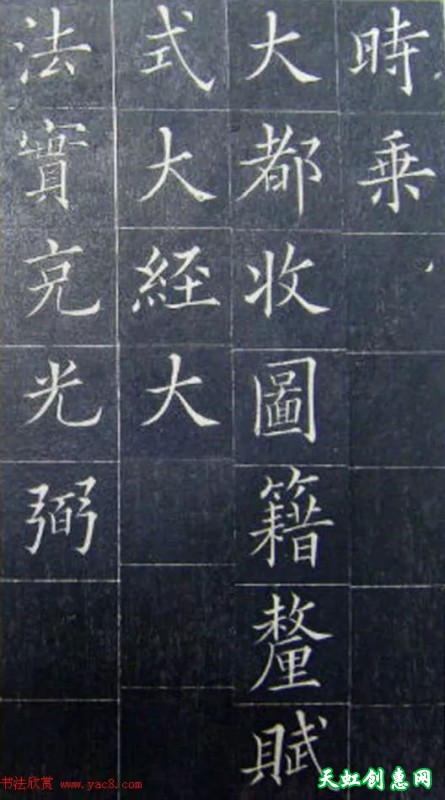 時乗
大都收圖籍釐賦
式大經大
法實克光弼
书法欣赏 www.yac8.com
天虹创惠网